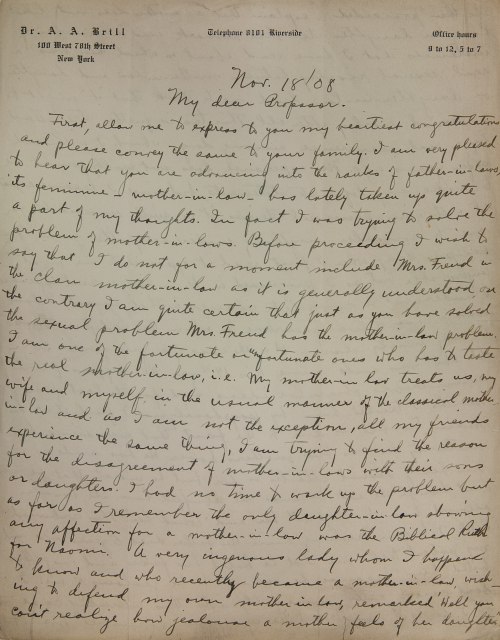 Dr. A. A. Brill
100 West 78th Street
New York
Telephone 8101 Riverside
Office hours
9 to 12, 5 to 7
Nov. 18/08
My dear Professor.
First, allow me to express to you my heartiest congratulations
and please convey the same to your family. I am very pleased
to hear that you are advancing into the ranks of father-in-laws,
its feminine - mother-in-law - has lately taken up quite
a part of my thoughts. In fact I was trying to solve the
problem of mother-in-laws. Before proceeding I wish to
say that I do not for a moment include Mrs. Freud in
the clan mother-in-law as it is generally understood on
the contrary I am quite certain that just as you have solved
the sexual problem Mrs. Freud has the mother-in-law problem.
I am one of the fortunate or unfortunate ones who has to taste
the real mother-in-law, i.e. My mother-in law treats us, my
wife and myself, in the usual manner of the classical mother-
in-law and as I am not the exception, all my friends
experience the same thing, I am trying to find the reason
for the disagreement of mother-in-laws with their sons
or daughters. I had no time to work up the problem but
as far as I remember the only daughter-in-law showing
any affection for a mother-in-law was the Biblical Ruth
for Naomi. A very ingenous lady whom I happened
to know and who recently became a mother-in-law, wish-
ing to defend my own mother in law, remarked "Well you
can't realize how jealouse a mother feels of her daughter